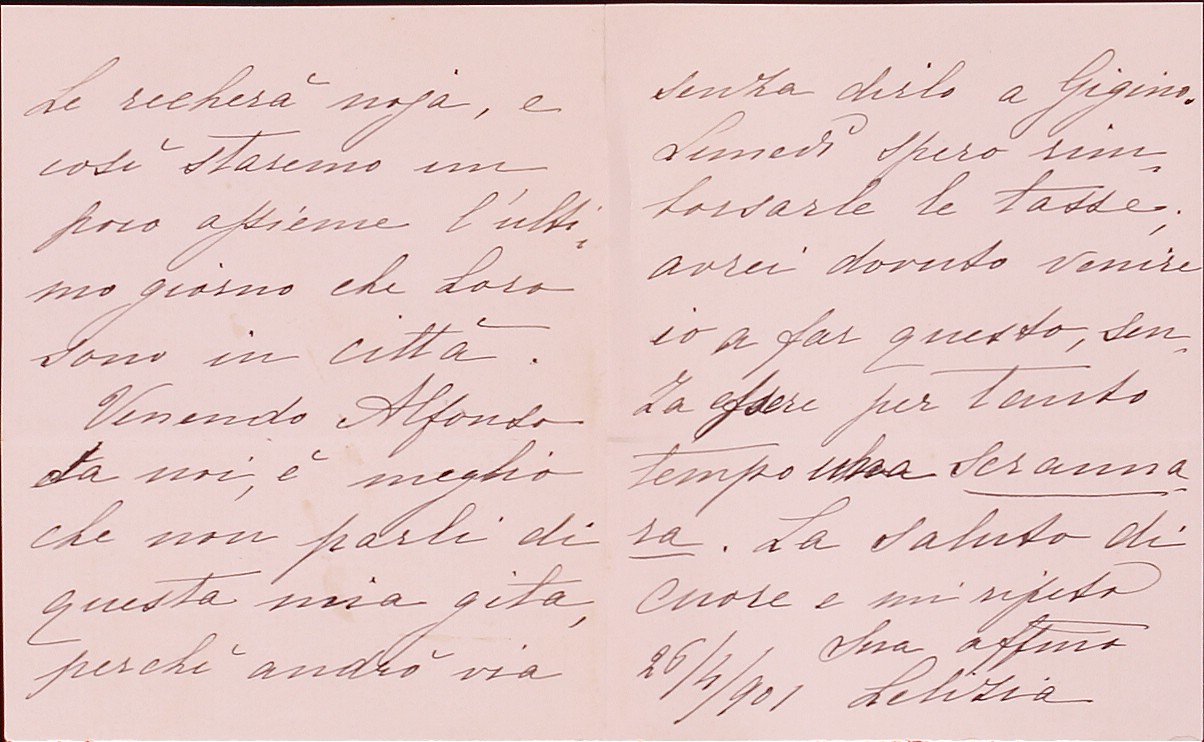 Le recherà noja, e
così staremo un
poco assieme l'ulti-
mo giorno che Loro
sono in città.
Venendo Alfonso
da noi, è meglio
che non parli di
questa mia gita,
perchè andrò via
senza dirlo a Gigino.
Lunedì spero rim-
borsarle le tasse;
avrei dovuto venire
io a far questo, sen-
za essere per tanto
tempo una scranna
ra. La saluto di
cuore e mi ripeto
Sua affma
Letizia